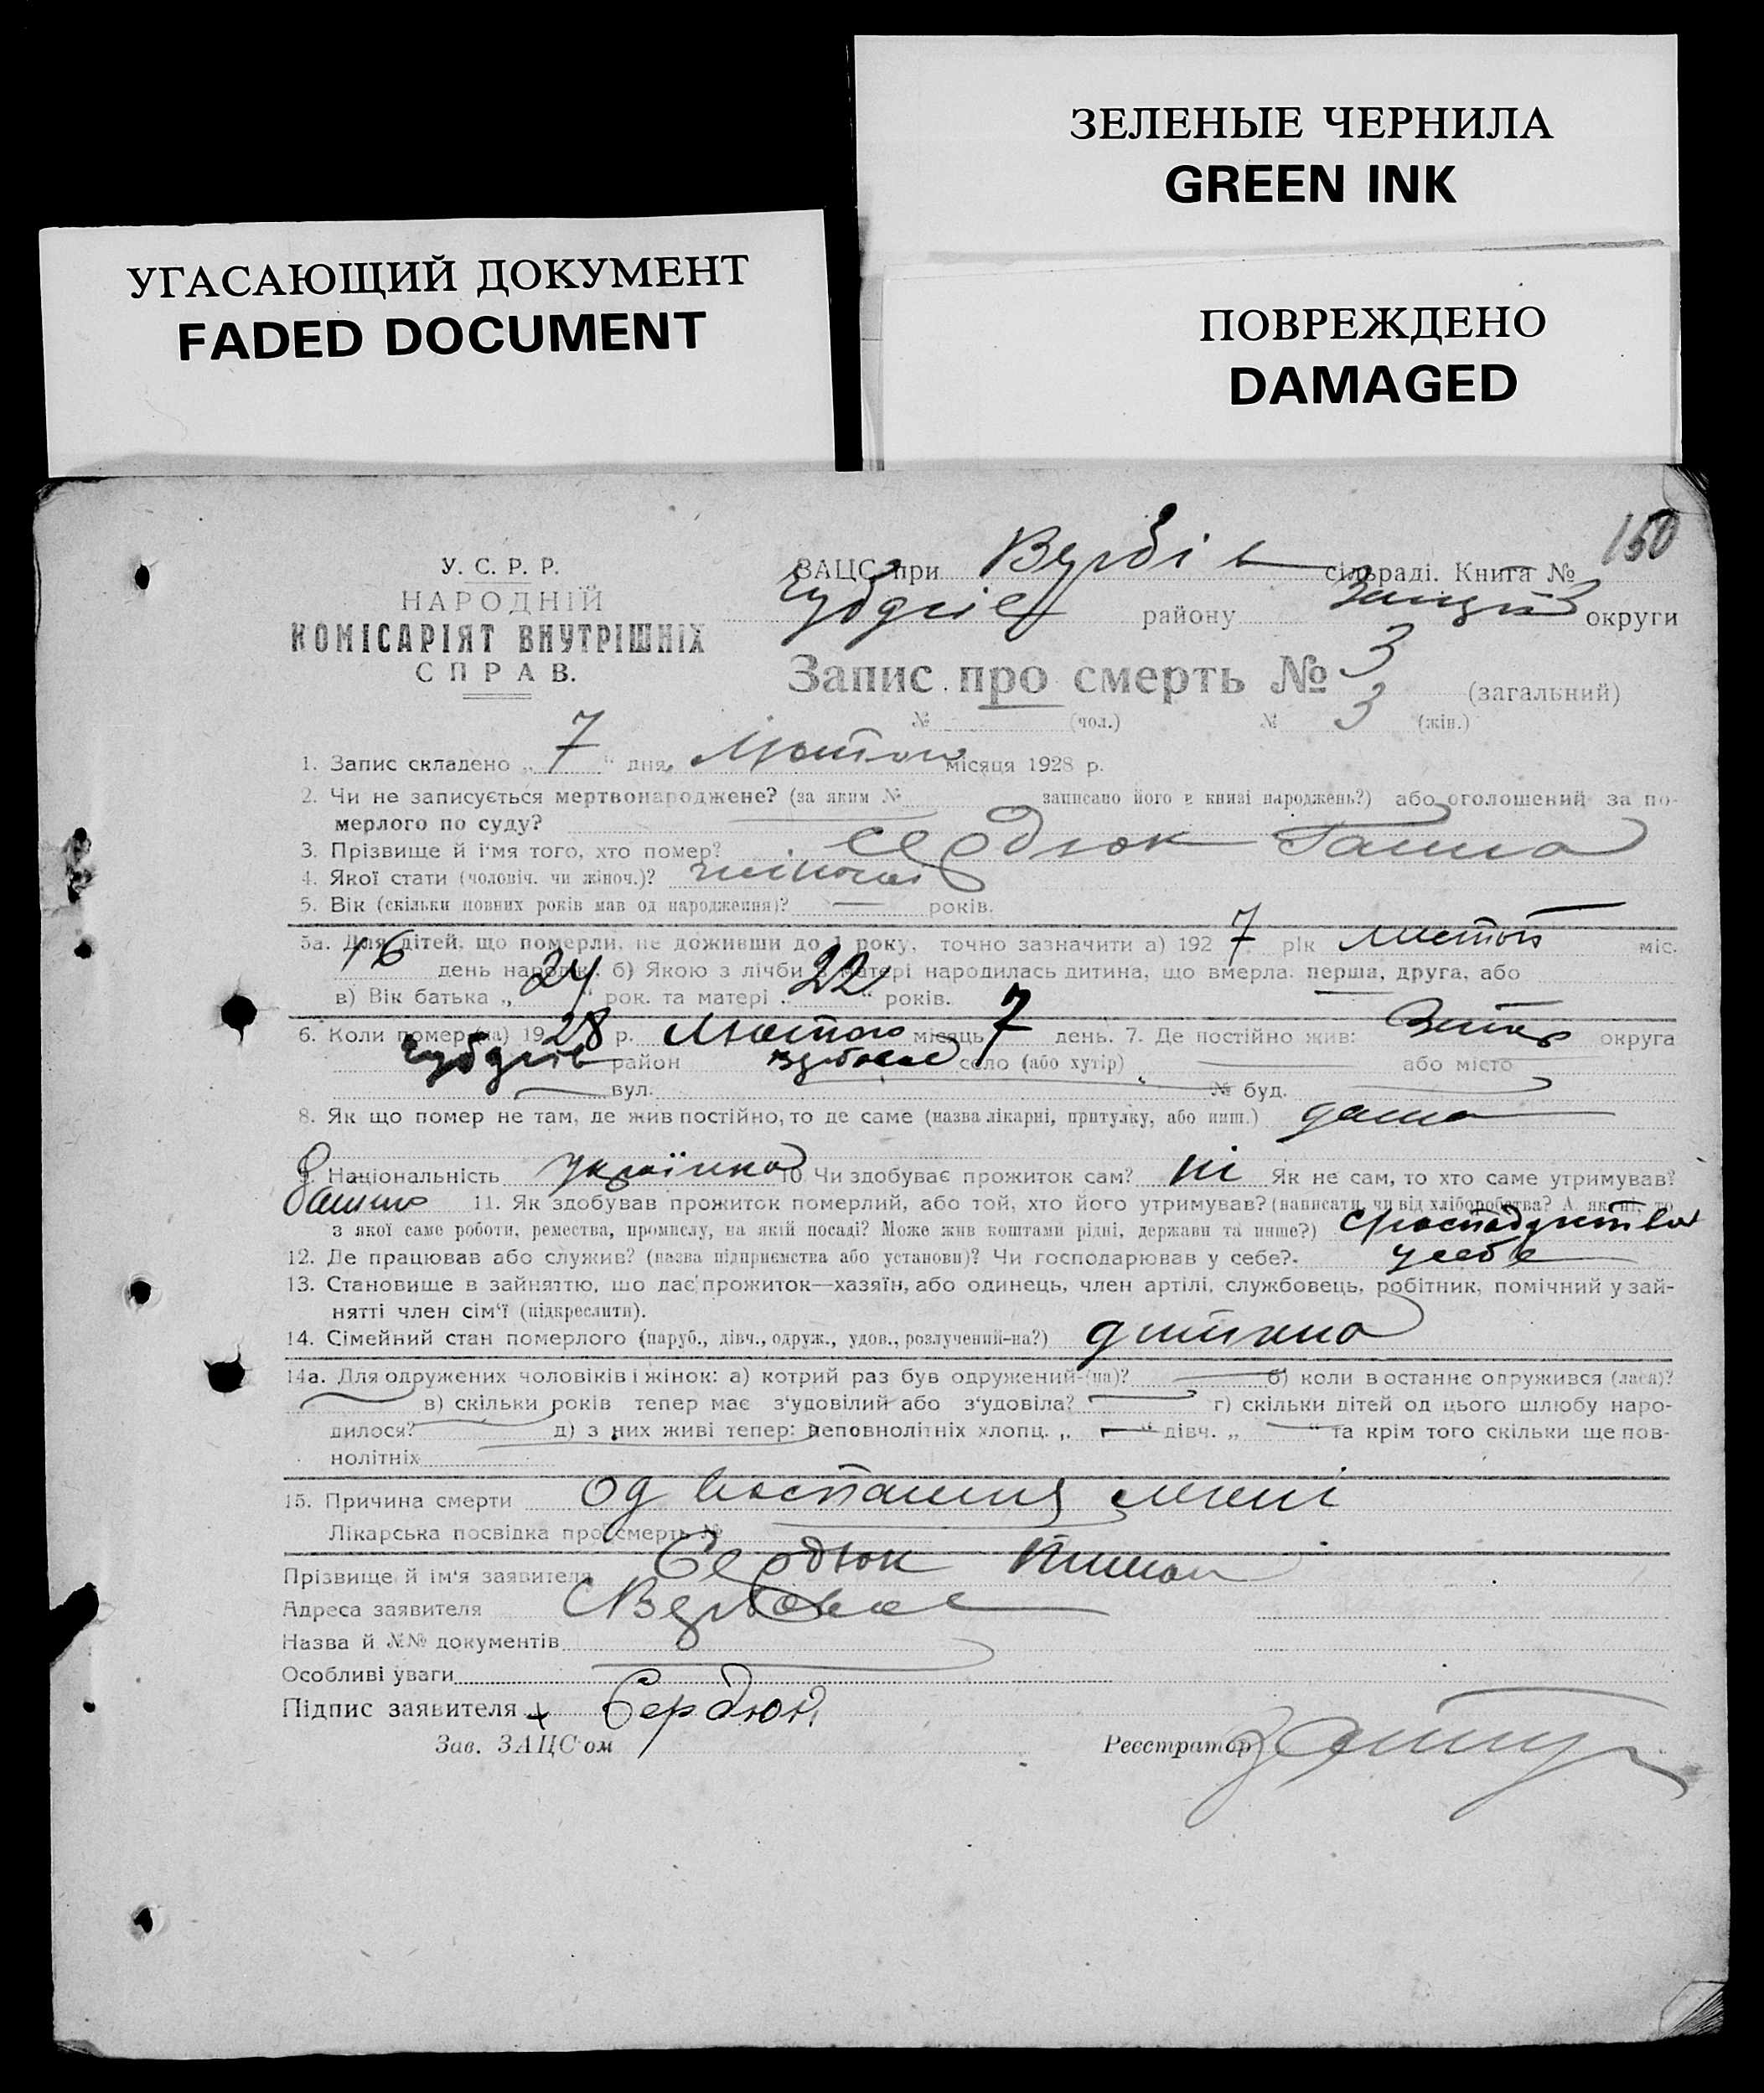 ЗЕЛЕНЫЕ ЧЕРНИЛА
GREEN INK
УГАСАЮЩИЙ ДОКУМЕНТ
FADED DOCUMENT
ПОВРЕЖДЕНО
DAMAGED
150
У. С. Р. Р.
НАРОДНІЙ
КОМІСАРІЯТ ВНУТРІШНІХ
СПРАВ.
ЗАЦС при Вербів сільраді. Книга №
району округи
Запис про смерть № 3 (загальний)
№ (чол.) № 3 (жін.)
1. Запис складено „ 7 “ дня Лютого місяця 1928 р.
2. Чи не записується мертвонароджене? (за яким № записано його в книзі народжень?) або оголошений за по-
мерлого по суду?
3. Прізвище й ім'я того, хто помер? Сердюк Ганна
4. Якої стати (чоловіч. чи жіноч.)? жіночої
5. Вік (скільки повних років мав од народження)? — років.
5а. Для дітей, що померли, не доживши до 1 року, точно зазначити а) 192 7 рік листоп міс.
16 день народж. б) Якою з лічби у матері народилась дитина, що вмерла: перша, друга, або
в) Вік батька „ 24 “ рок. та матері „ 22 “ років.
6. Коли помер (ла) 1928 р. Лютого місяць 7 день. 7. Де постійно жив: округа
район село (або хутір) або місто
вул. № буд.
8. Як що помер не там, де жив постійно, то де саме (назва лікарні, притулку, або инш.) дома
9. Національність Українка 10 Чи здобуває прожиток сам? ні Як не сам, то хто саме утримував?
батько 11. Як здобував прожиток померлий, або той, хто його утримував? (написати, чи від хліборобства? А як ні, то
з якої саме роботи, ремества, промислу, на якій посаді? Може жив коштами рідні, держави та инше?)
12. Де працював або служив? (назва підприємства або установи)? Чи господарював у себе? у себе
13. Становище в зайняттю, що дає прожиток—хазяїн, або одинець, член артілі, службовець, робітник, помічний у зай-
нятті член сім'ї (підкреслити).
14. Сімейний стан померлого (паруб., дівч., одруж., удов., розлучений-на?) дитина
14а. Для одружених чоловіків і жінок: а) котрий раз був одружений-(на)? б) коли в останнє одружився (лася)?
в) скільки років тепер має з'удовілий або з'удовіла? г) скільки дітей од цього шлюбу наро-
дилося? д) з них живі тепер: неповнолітніх хлопц. „ “ дівч. „ “ та крім того скільки ще пов-
нолітніх
15. Причина смерти од воспаления легені
Лікарська посвідка про смерть №
Прізвище й ім'я заявителя Сердюк
Адреса заявителя
Назва й №№ документів
Особливі уваги
Підпис заявителя + Сердюк
Зав. ЗАЦС'ом Реєстратор